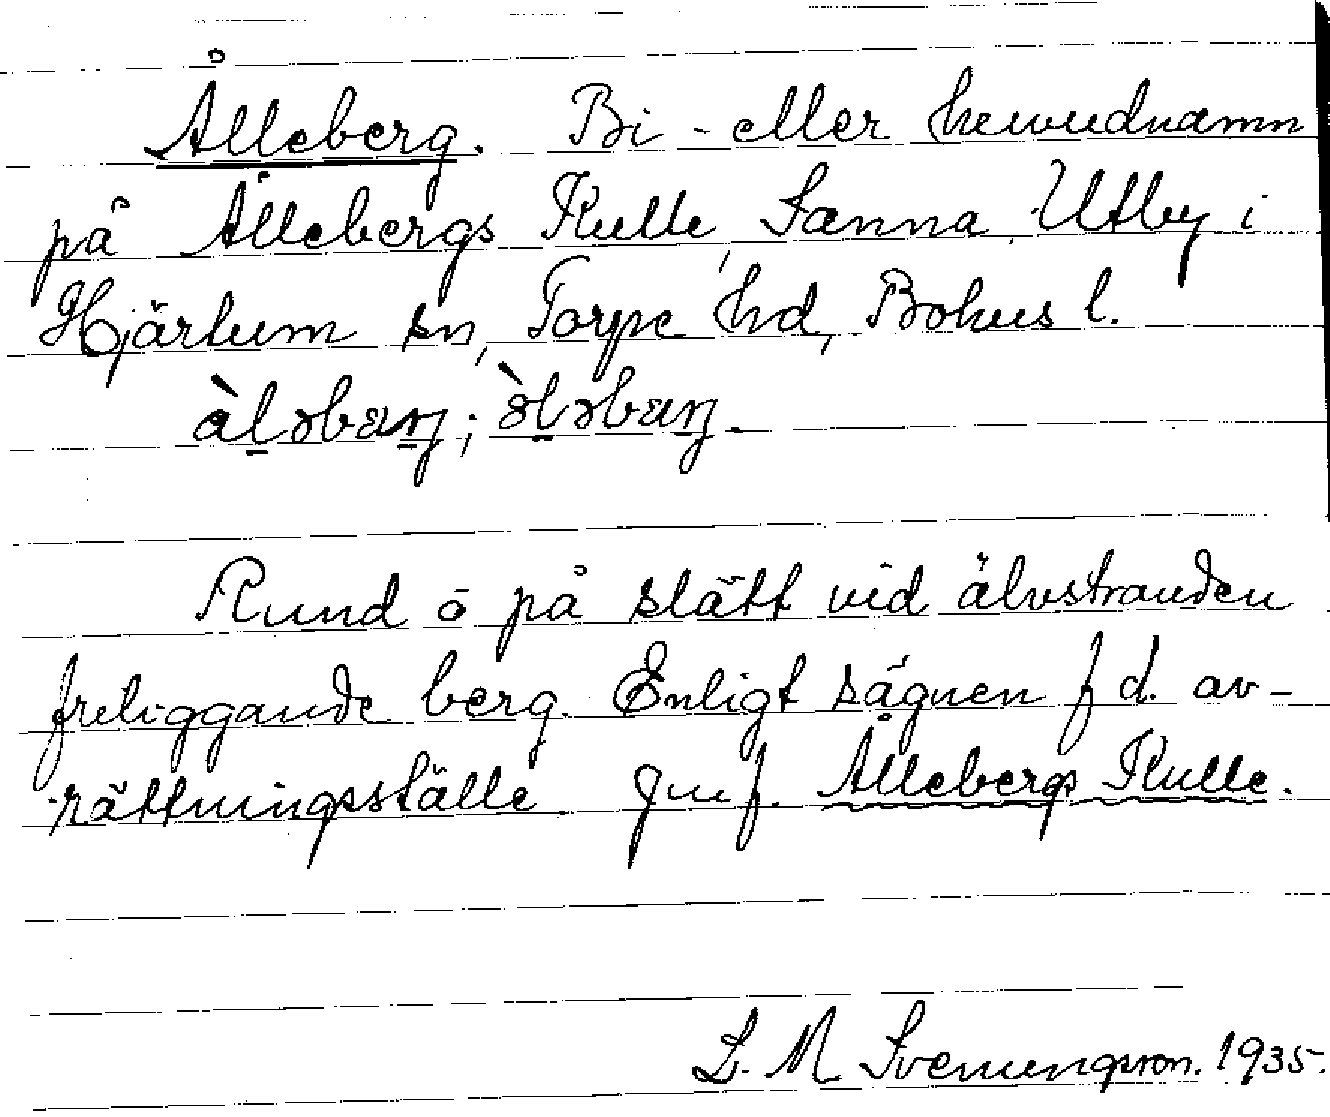 Ålleberg. Bi- eller huvudnamn
på Ållebergs Kulle, Sanna, Utby i
Hjärtum sn, Torpe hd, Bohus l.
àl̠əbæŋ; òl̠əbæŋ.
Rund ö på slätt vid älvstranden
freliggande berg. Enligt sägnen f d. av-
rättningsställe Jmf. Ållebergs Kulle.
L. M Svenungsson. 1935.